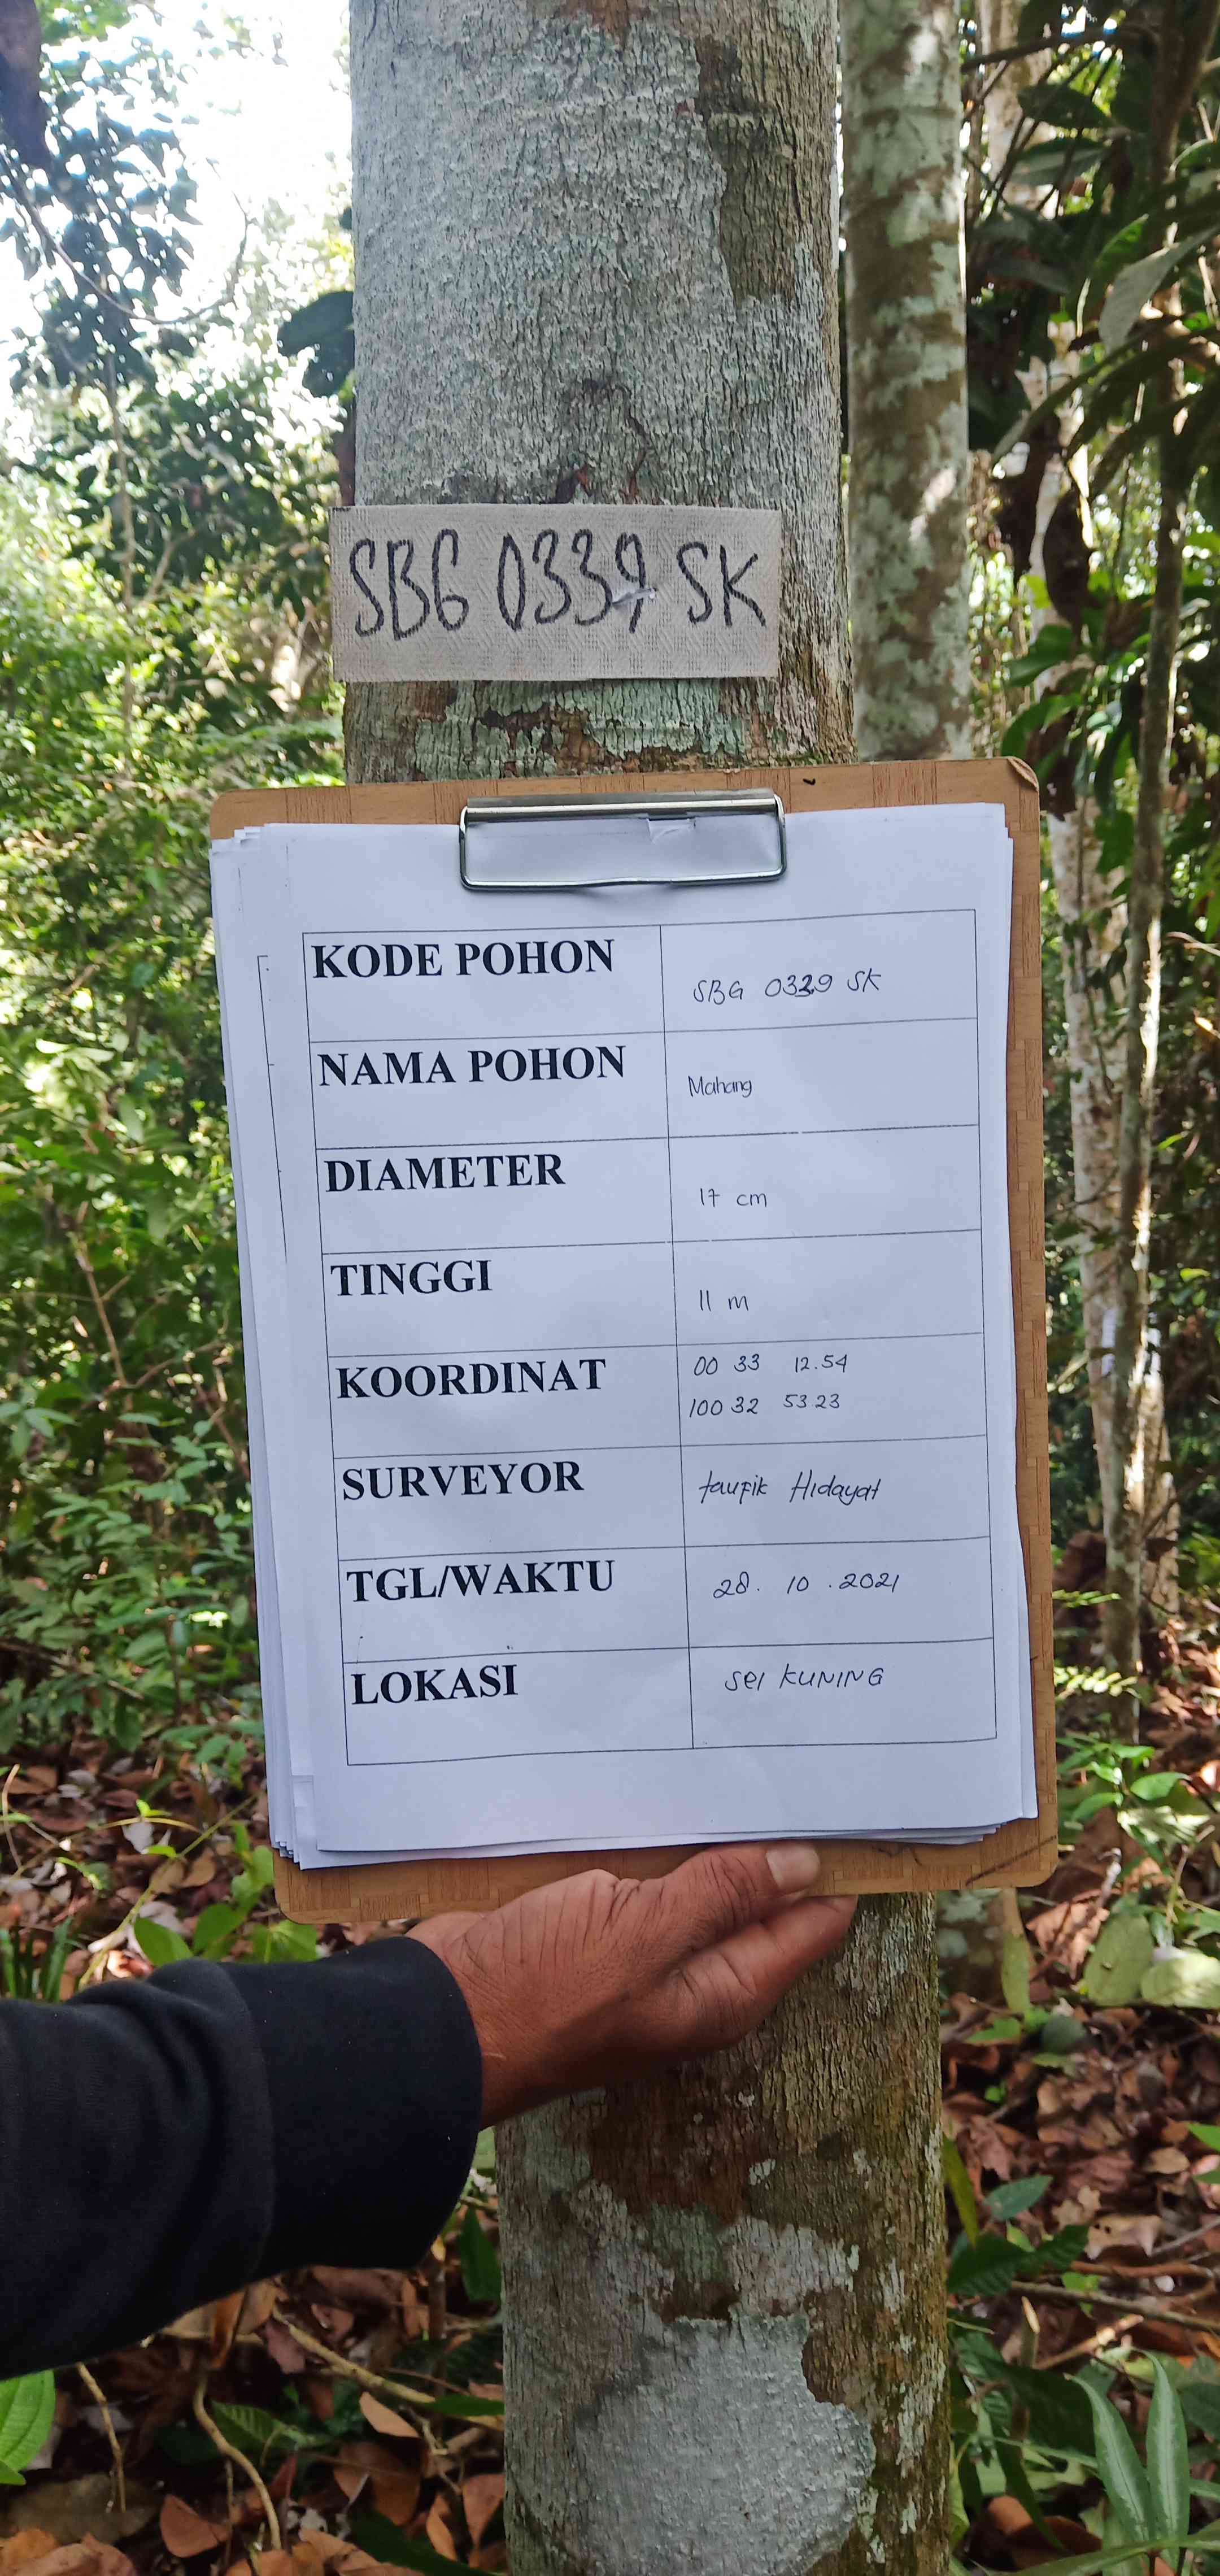 SBG 0339 SK
KODE POHON SBG 0339 SK
NAMA POHON Mahang
DIAMETER 17 cm
TINGGI 11 m
KOORDINAT 00 33 12.54
100 32 53 23
SURVEYOR taufik Hidayat
TGL/WAKTU 28. 10 .2021
LOKASI sei KUNING